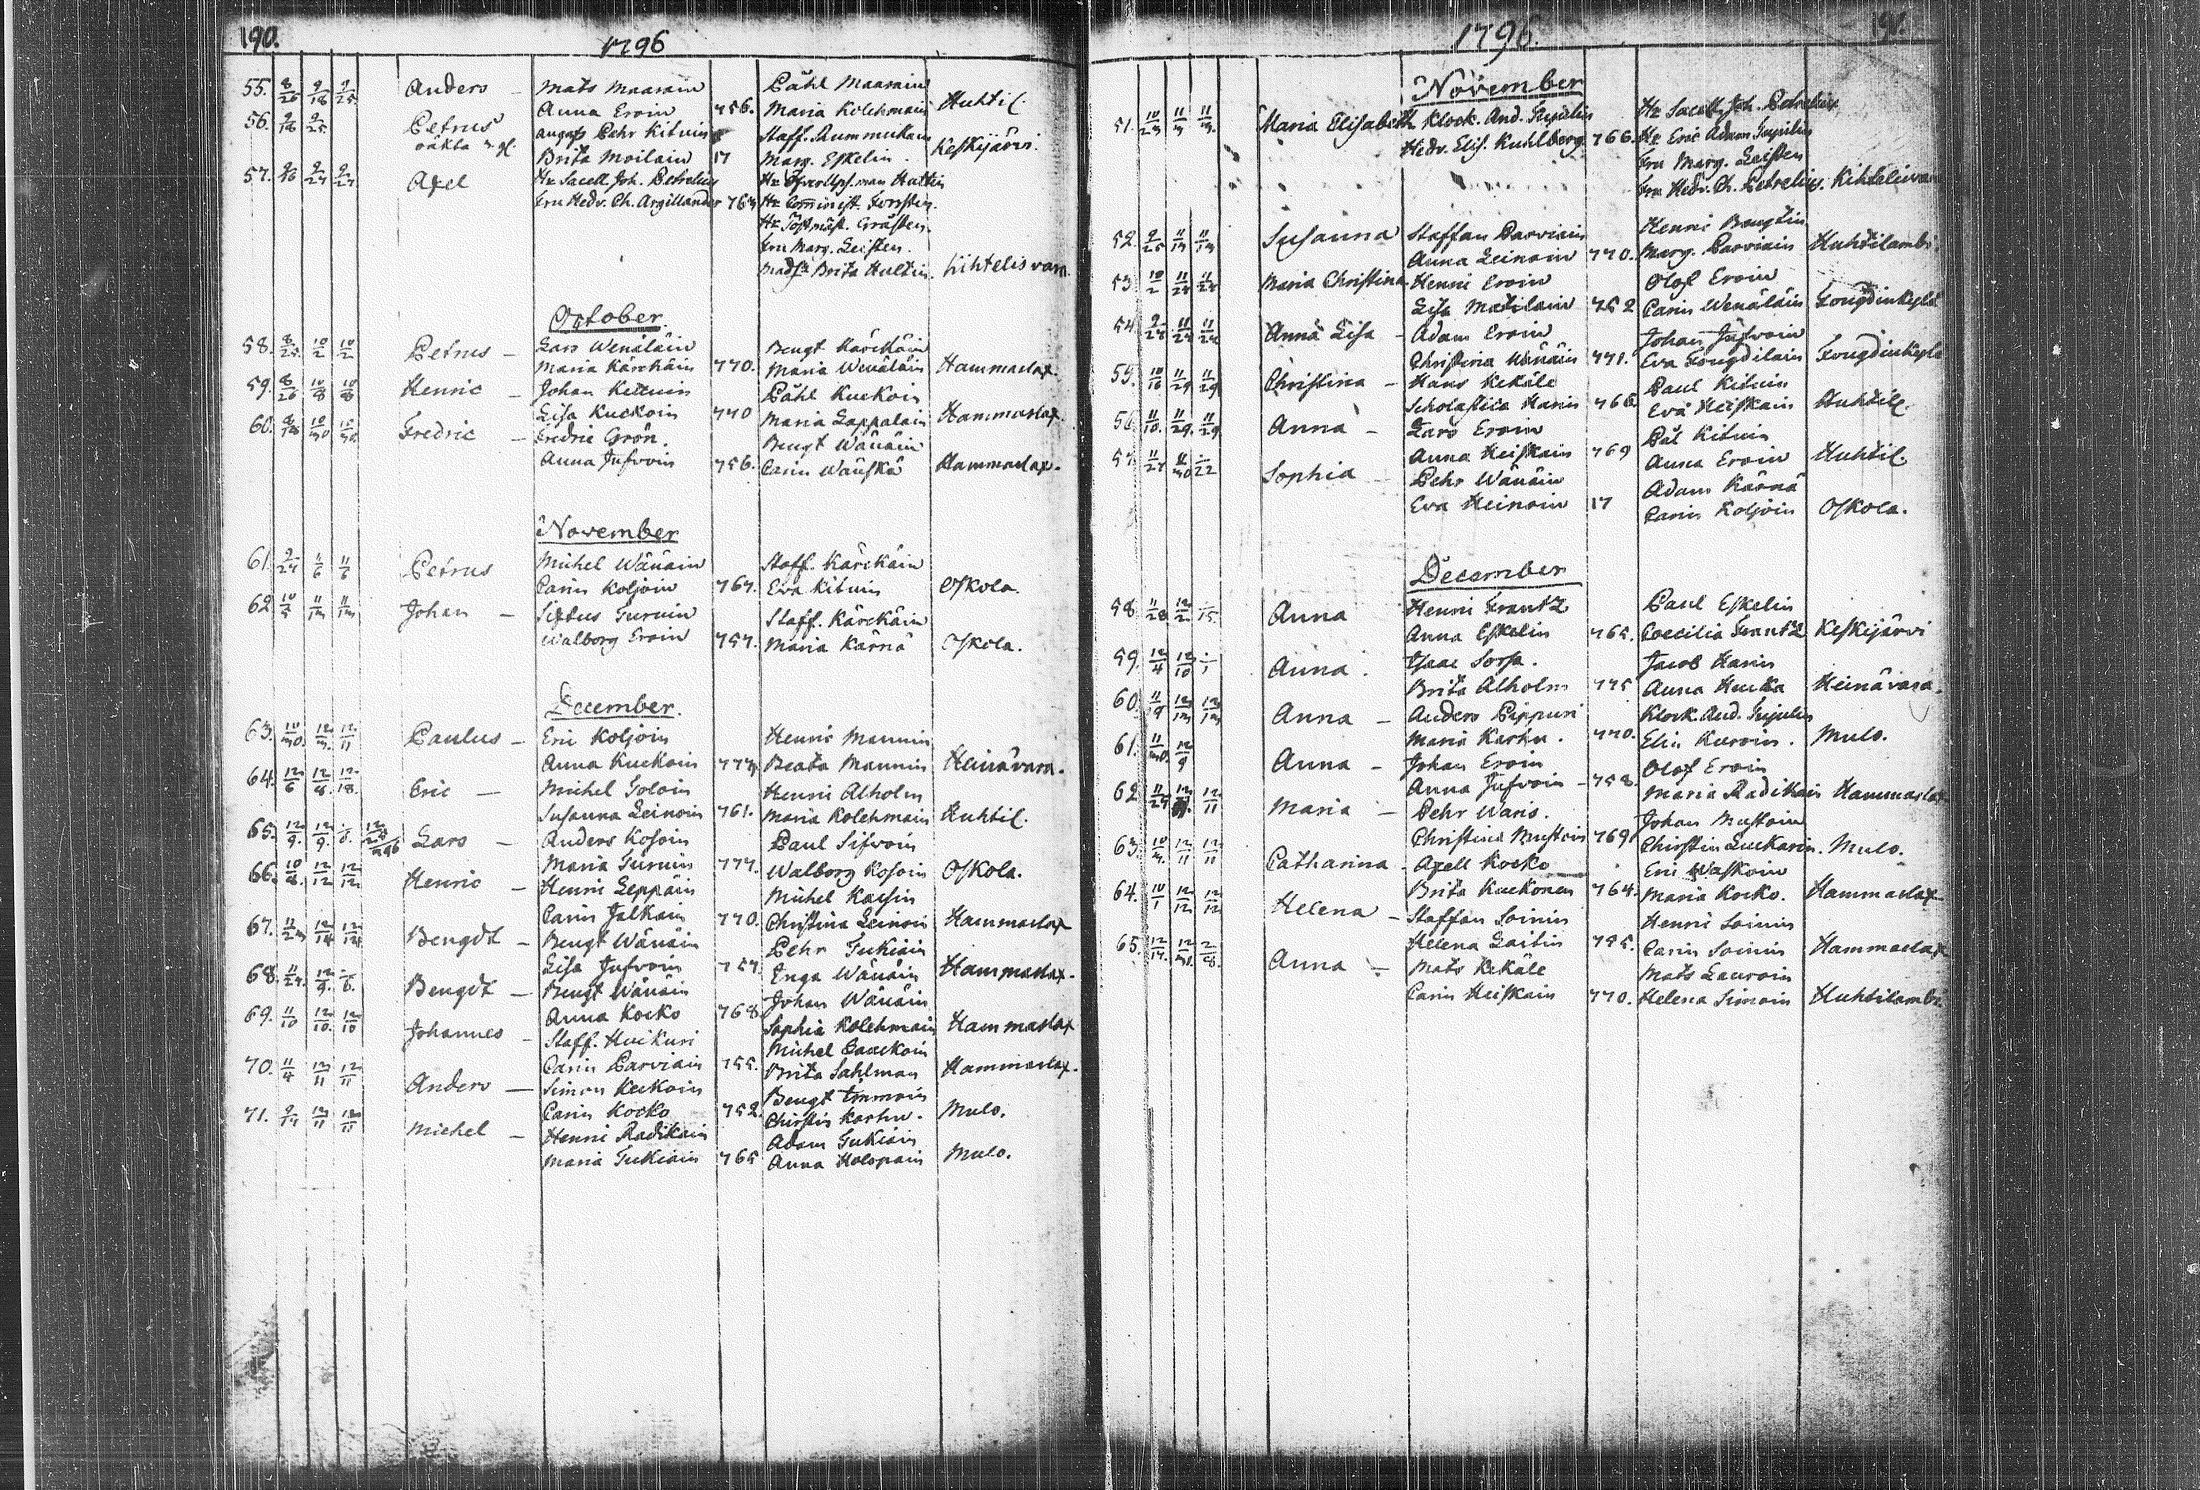 190.
1796
55. 8/26 9/18 9/25 Anders – Mats Maarain Påhl Maarain
Anna Eroin 756. Maria Kolehmain Huhtil.
56. 9/16 9/25 Petrus Pehr Kituin Staff. Summukain
oäkta Brita Moilain 17 Marg. Eskelin. Keskijärvi.
57. 9/16 9/27 9/27 Axel Hr Sacell. Joh. Petrelius
Fru Hedv. Ch. Argillander 763 Hr Commiss. Forsten.
Hr Postmäst. Gråsten.
Fru Marg. Zeisten.
Brita Hultin. Kihtelisvara.
October.
58. 8/25 10/2 10/2 Petrus – Lars Wenäläin Bengt Kärckäin
Maria Kärckäin 770. Maria Wenäläin Hammaslax.
59. 8/26 10/8 10/8 Henric – Johan Kituin Påhl Kuckoin
Lisa Kuckoin 770 Maria Lappalain Hammaslax.
60. 10/30 10/30 Fredric – Fredric Grön. Bengt Wänäin
Anna Jufvoin 756. Carin Wänskä Hammaslax.
November
61. 9/24 11/6 11/6 Petrus Michel Wänäin Staff. Kärckäin
Carin Koljoin 767. Eva Kituin Oskola.
62. 10/5 11/13 11/13 Johan – Sixtus Turuin Staff. Kärckäin
Walborg Eroin 757. Maria Kärnä Oskola.
December.
63. 10/30. 12/3. 12/11 Paulus – Eric Koljoin Henric Mannin
Anna Kuckoin 773 Beata Mannin Heinävara.
64. 12/6 12/8. 12/18. Eric – Michel Toloin Henric Alholm
Susanna Leinoin 761. Maria Kolehmain Huhtil.
65. 12/9. 12/9. Lars – Anders Kosoin Paul Sifvoin
Maria Turuin 777. Walborg Kosoin Oskola.
66. 10/8. 12/12 12/12 Henric – Henric Leppäin Michel Kaisin
Carin Jalkain 770. Christina Leinoin Hammaslax
67. 11/23 12/14 12/14 Bengdt – Bengt Wänäin Pehr Tukiain
Lisa Jufvoin 757. Inga Wänäin Hammaslax.
68. 11/27. 12/9. Bengdt – Bengt Wänäin Johan Wänäin
Anna Kocko 768 Sophia Kolehmain Hammaslax
69. 11/10 12/10. 12/10 Johannes – Staff. Huikuri Michel Paackoin
Carin Parviain 755. Brita Sahlman Hammaslax.
70. 11/4 12/11 12/11 Anders – Simon Kuckoin Bengt Immoin
Carin Kocko 752. Christin Karhu. Mulo.
71. 12/11 12/11 Michel – Henric Radikain Adam Tukiain
Maria Tukiain 765 Anna Holopain Mulo.
1796.
191.
November
51. 10/23 11/3 11/3. Maria Elisabeth Klock. And. Hr Sacell. Joh. Petrelius
Hedv. Elis. Kuhlberg 766. Hr Eric Adam
Fru Marg. Zeisten
Fru Hedv. Ch. Petrelius. Kihtelisvara
52. 9/25 11/13 11/13 Susanna Staffan Parviain Henric Bengtin
Anna Leinoin 770. Marg. Parviain Huhtilambi
53. 10/2 11/24 11/24 Maria Christina Henric Eroin Olof Eroin
Lisa Matilain 752 Carin Wenäläin Fougdinkylä
54. 9/28 11/24 11/24 Anna Lisa – Adam Eroin Johan Jufvoin
Christina Wänäin 771. Eva Fougdilain Fougdinkylä
55. 10/16 11/29 11/29 Christina – Hans Kekäle Paul Kituin
Scholastica Hanin 766. Eva Heiskain Huhtil.
56. 11/10. 11/29. 11/29 Anna – Lars Eroin Pål Kituin
Anna Heiskain 769 Anna Eroin Huhtil.
57. 11/27 11/30 Sophia – Pehr Wänäin Adam Kärnä
Eva Heinoin 17 Carin Koljoin Oskola.
December
58. 11/28 12/2. Anna Henric Frantz Paul Eskelin
Anna Eskelin 765. Coecilia Frantz Keskijärvi
59. 12/4 12/10 Anna. Isaac Sorsa. Jacob Hanin
Brita Alholm 775 Anna Huckka Heinävara.
60. 11/9 12/13 12/13 Anna – Anders Pippuri Klock. And.
Maria Karhu. 770. Elin Kuroin. Mulo.
61. 11/30. 12/9 Anna – Johan Eroin Olof Eroin
Anna Jufvoin – 758. Maria Radikain Hammaslax
62. 11/27 12/11 Maria – Pehr Waris. Johan Mustoin
Christina Mustoin 769 Christin Luckarin. Mulo.
63. 10/3. 12/11 12/11 Catharina – Axell Kocko Eric Waskoin
Brita Kuckonen 764. Maria Kocko. Hammaslax
64. 10/1 12/12 12/12 Helena – Staffan Soinin Henric Soinin
Helena Laitin 775. Carin Soinin Hammaslax
65. 12/17. 12/31. 2/8. Anna – Mats Kekäle Mats Lauroin
Carin Heiskain 770. Helena Simoin Huhtilambi.